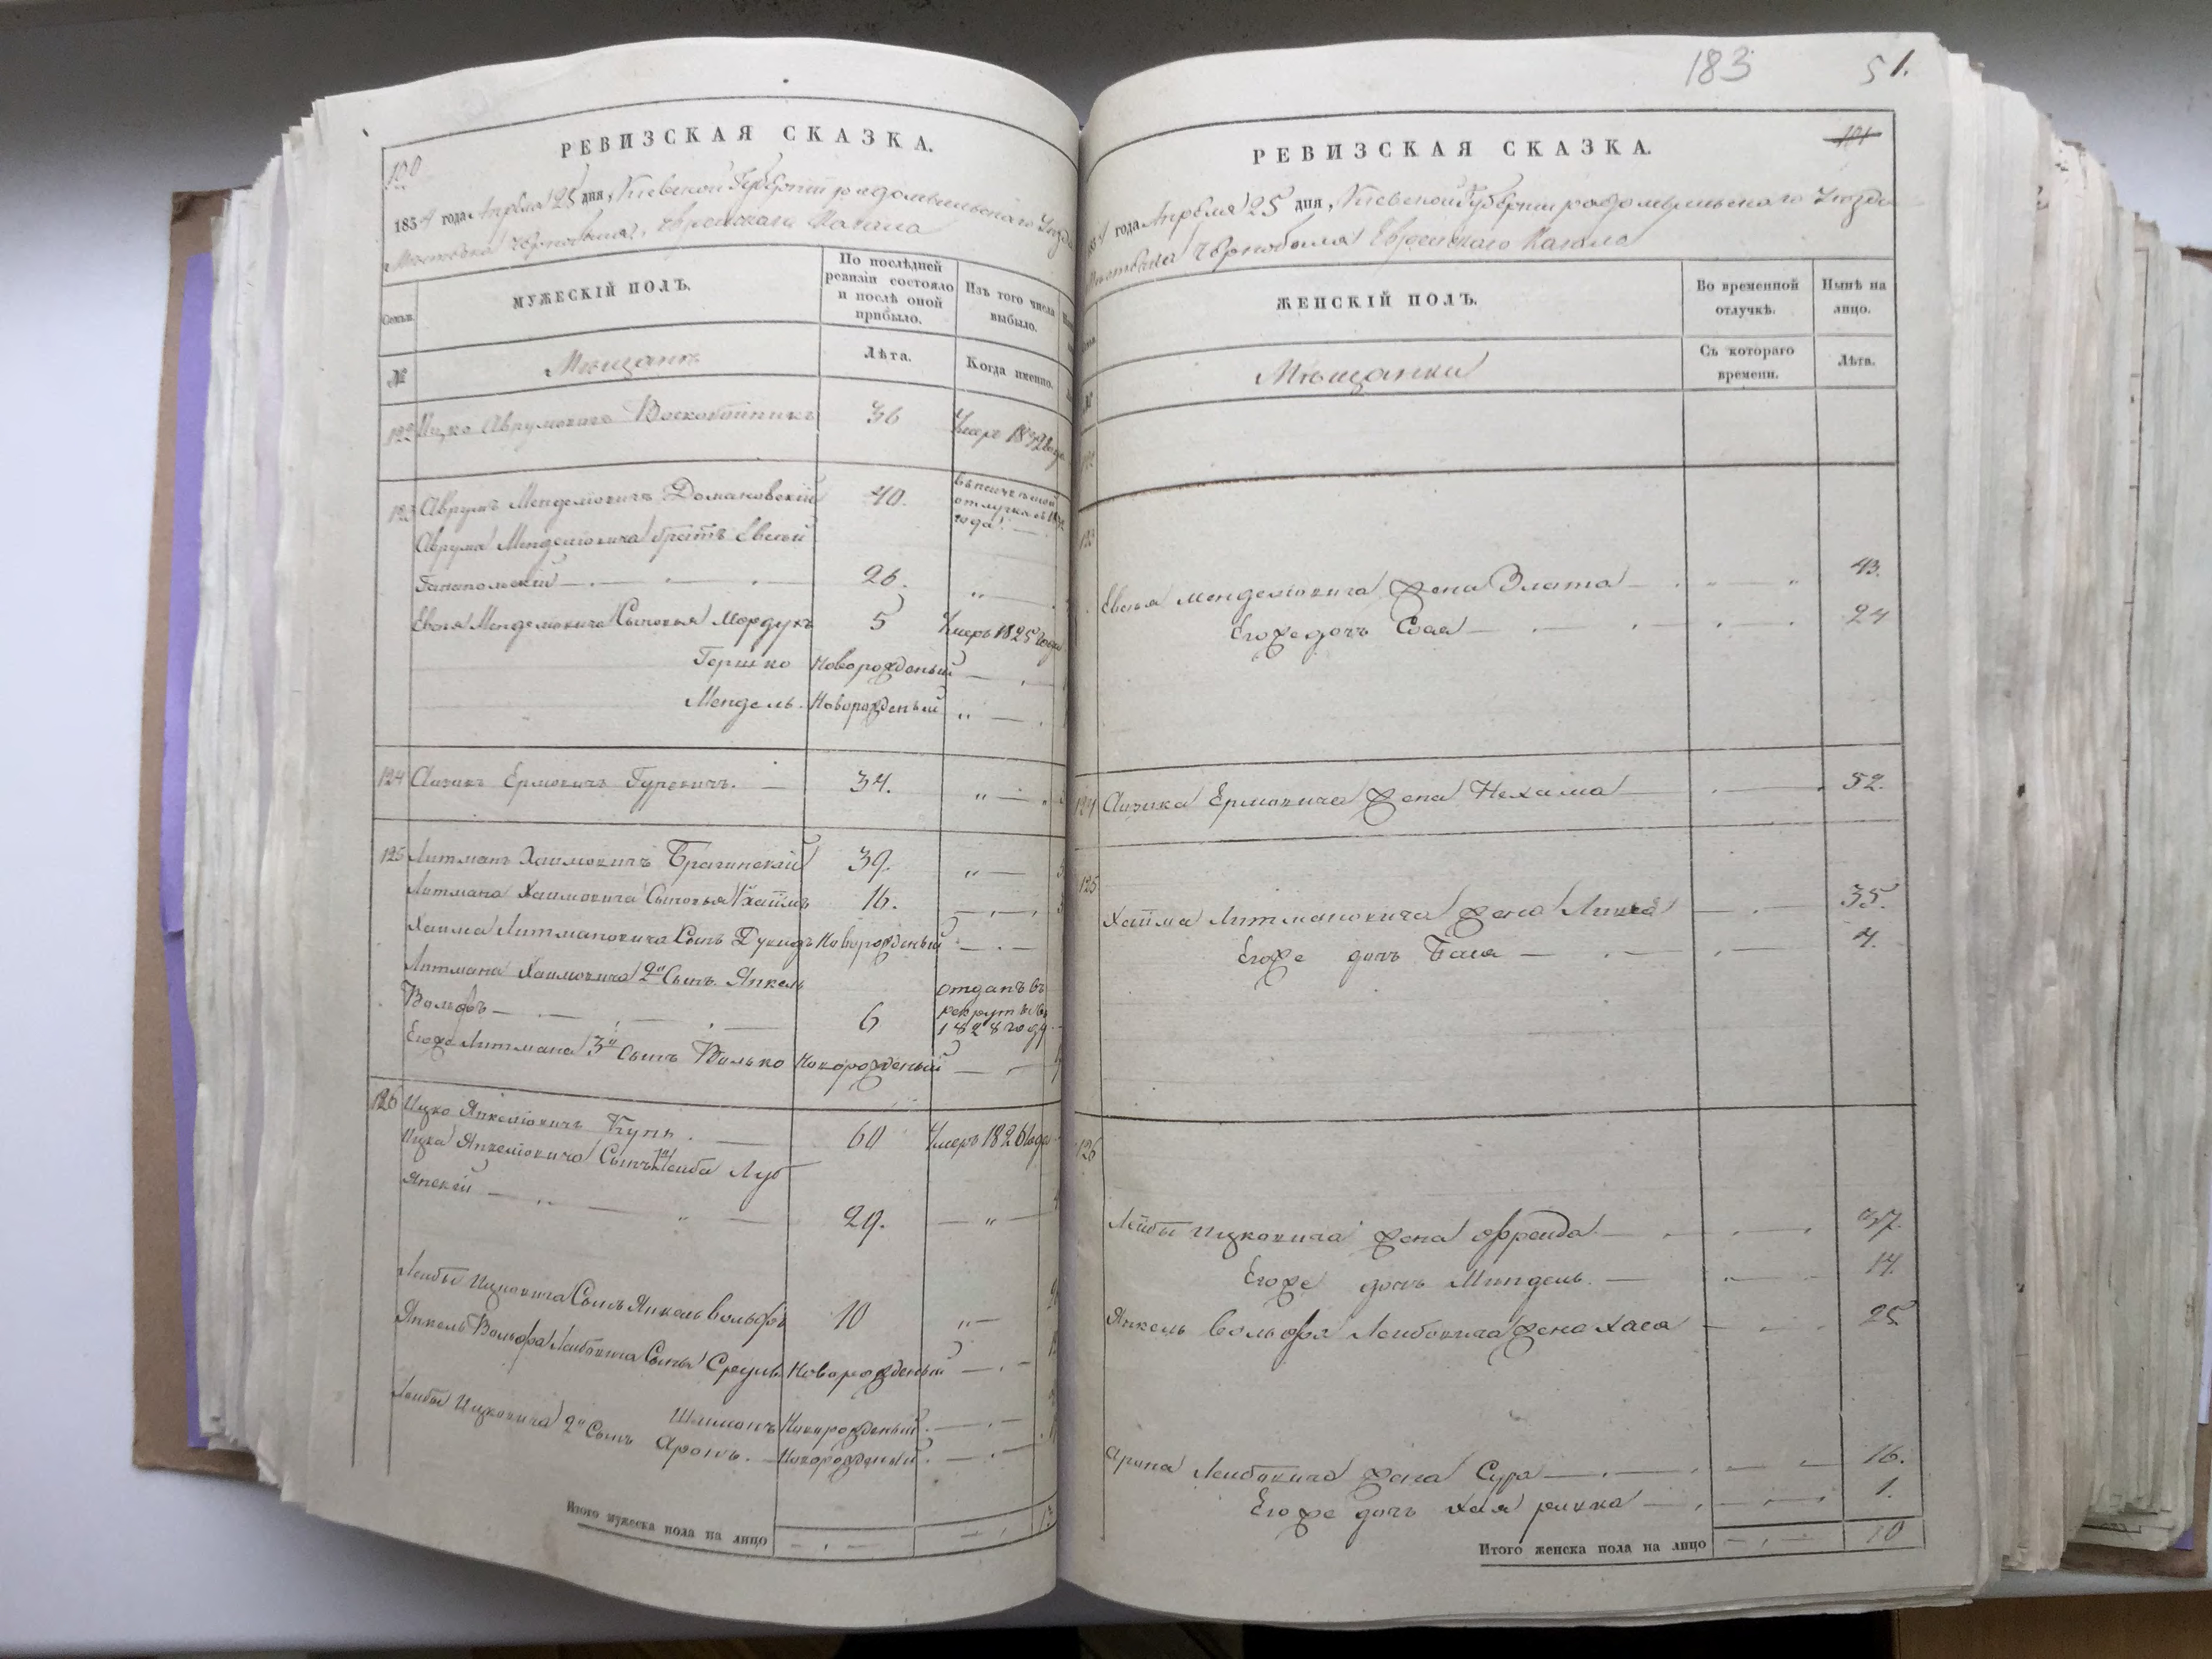 100
РЕВИЗСКАЯ СКАЗКА.
1834 года Апреля 25 дня, Киевской Губернии радомысльскаго Уезда
Местечка Чернобыля, Еврейскаго Кагала
Семьи
МУЖЕСКІЙ ПОЛЪ.
По послѣдней ревизіи состояло и послѣ оной прибыло.
Изъ того числа выбыло.
№
Мещане
Лѣта.
Когда именно.
122 Ицко Аврумовичъ Воскобойникъ 36 Умеръ 1832 года
123 Аврумъ Менделіовичъ Домановскій 40. в отлучке с года
Аврума Менделіовича братъ Евель
Ганапольскій — . — . 26. „
Евеля Менделіовича Сыновья Мордухъ 5 Умеръ 1825 года
Гершко Новорожденый —
Мендель. Новорожденый „ —
124 Аизикъ Ермовичъ Гуревичъ. — 34. „ —
125 Литманъ Хаимовичъ Брагинскій 39. „ —
Литмана Хаимовича Сыновья 1й Хаимъ 16. —
Хаима Литмановича Сынъ Новорожденый —
Литмана Хаимовича 2й Сынъ Янкель
Вольфъ — . — 6 отданъ въ рекруты въ 1828 году
Егоже Литмана 3й Сынъ Волько Новорожденый —
126 Ицко Янкеліовичъ Купъ. — 60 Умеръ 1826 года
Ицка Янкеліовича Сынъ 1й Лейба Луб
янскій — „ — 29. — „ —
Лейбы Ицковича Сынъ Янкель Вольфъ 10 „ —
Янкель Вольфа Лейбовича Сыны Сруль Новорожденый —
Шлиома Новорожденый. —
Лейбы Ицковича 2й Сынъ Аронъ. Новорожденый. —
Итого мужеска пола на лицо — . —
183
51.
101
РЕВИЗСКАЯ СКАЗКА.
1834 года Апреля 25 дня, Киевской Губернии радомысльскаго Уезда
Местечка Чернобыля Еврейскаго Кагала
ЖЕНСКІЙ ПОЛЪ.
Во временной отлучкѣ.
Нынѣ на лицо.
№
Мещанки
Съ котораго времени.
Лѣта.
122
123
Евеля Менделіовича жена Злата — . „ — „ 43.
Егоже дочь Сося — . — . 24
124 Аизика Ермовича жена Нехама — . — . 52.
125
Хаима Литмановича жена — . — 35.
Егоже дочь Бася — . — . — 4.
126
Лейбы Ицковича жена Фрейда — . — . 37.
Егоже дочь Миндель. — „ — 14.
Янкель Вольфа Лейбовича жена Хася — . 25
Арона Лейбовича жена Сура — . — 16.
Егоже дочь Хая ривка — . — . 1.
Итого женска пола на лицо — . — 10